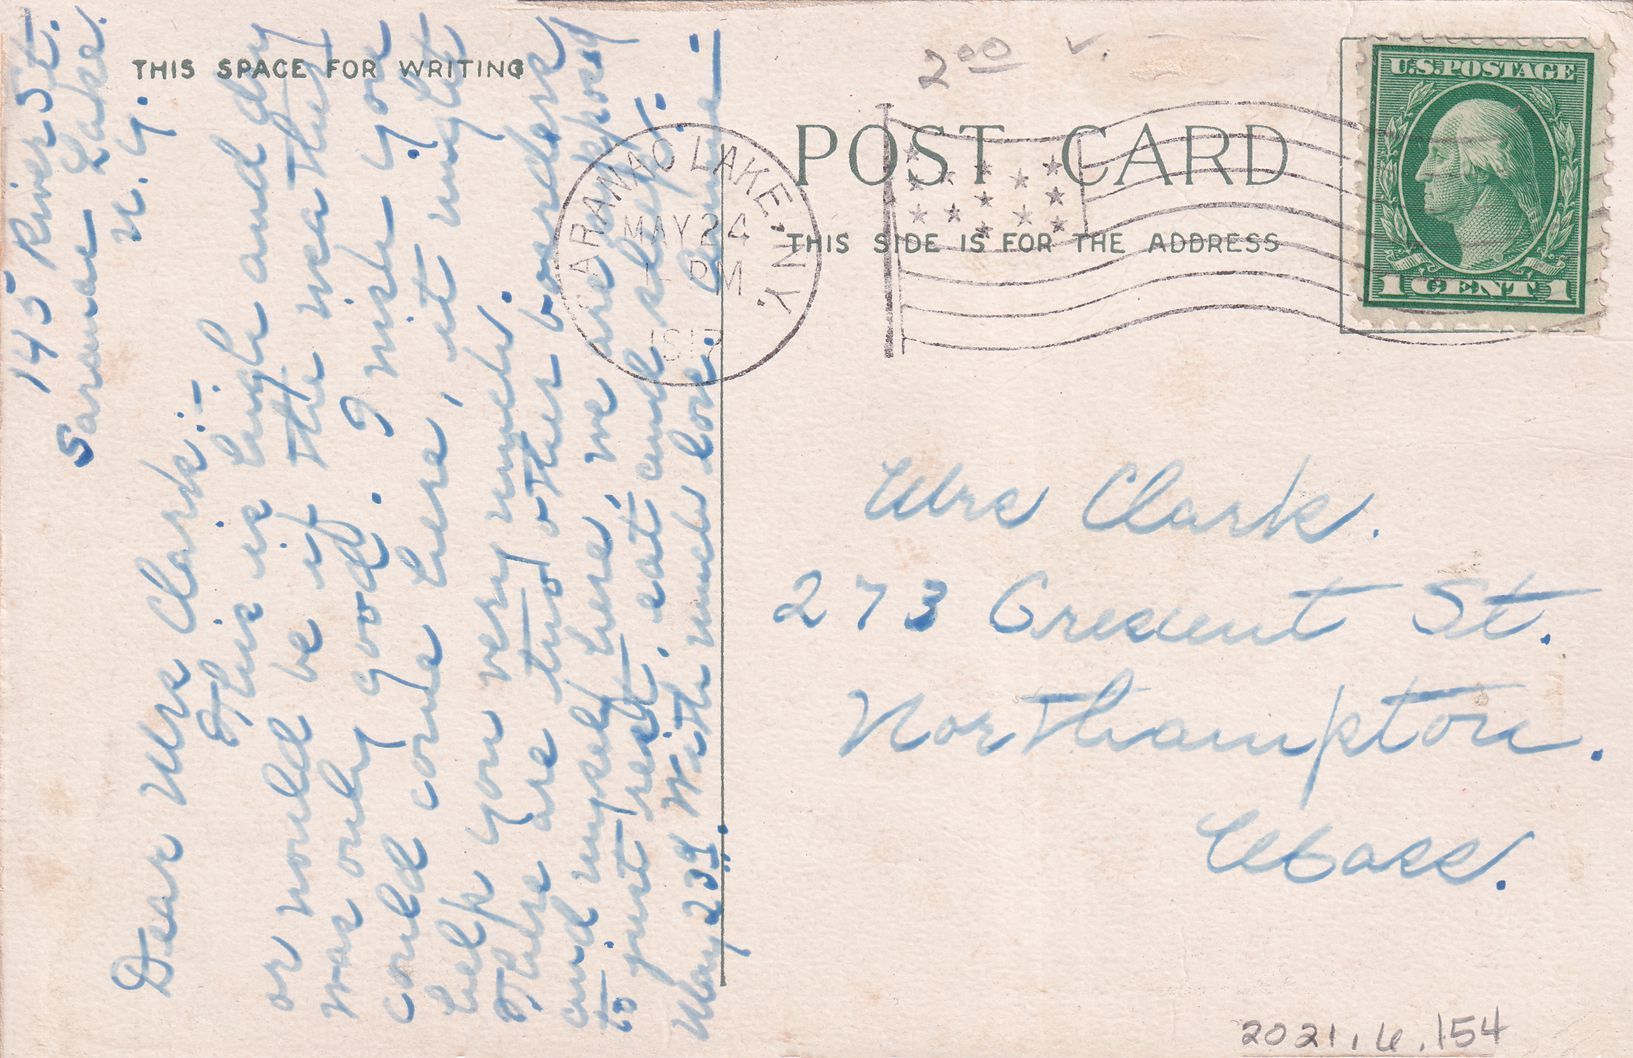 THIS SPACE FOR WRITING
145 River St.
Saranac Lake.
N.Y.
Dear Mrs Clark:-
This is high and dry
or would be if the weather
was only good. I wish you
could come here, it might
help you very much.
There are two other boarders
and myself here, we are supposed
to just rest, eat and sleep.
May 23d With much love.
2 00 v.
SARANAC LAKE, N.Y.
MAY 24
PM
POST CARD
THIS SIDE IS FOR THE ADDRESS
U.S. POSTAGE
1 CENT 1
Mrs Clark.
273 Crescent St.
Northampton.
Mass.
2021.6.154